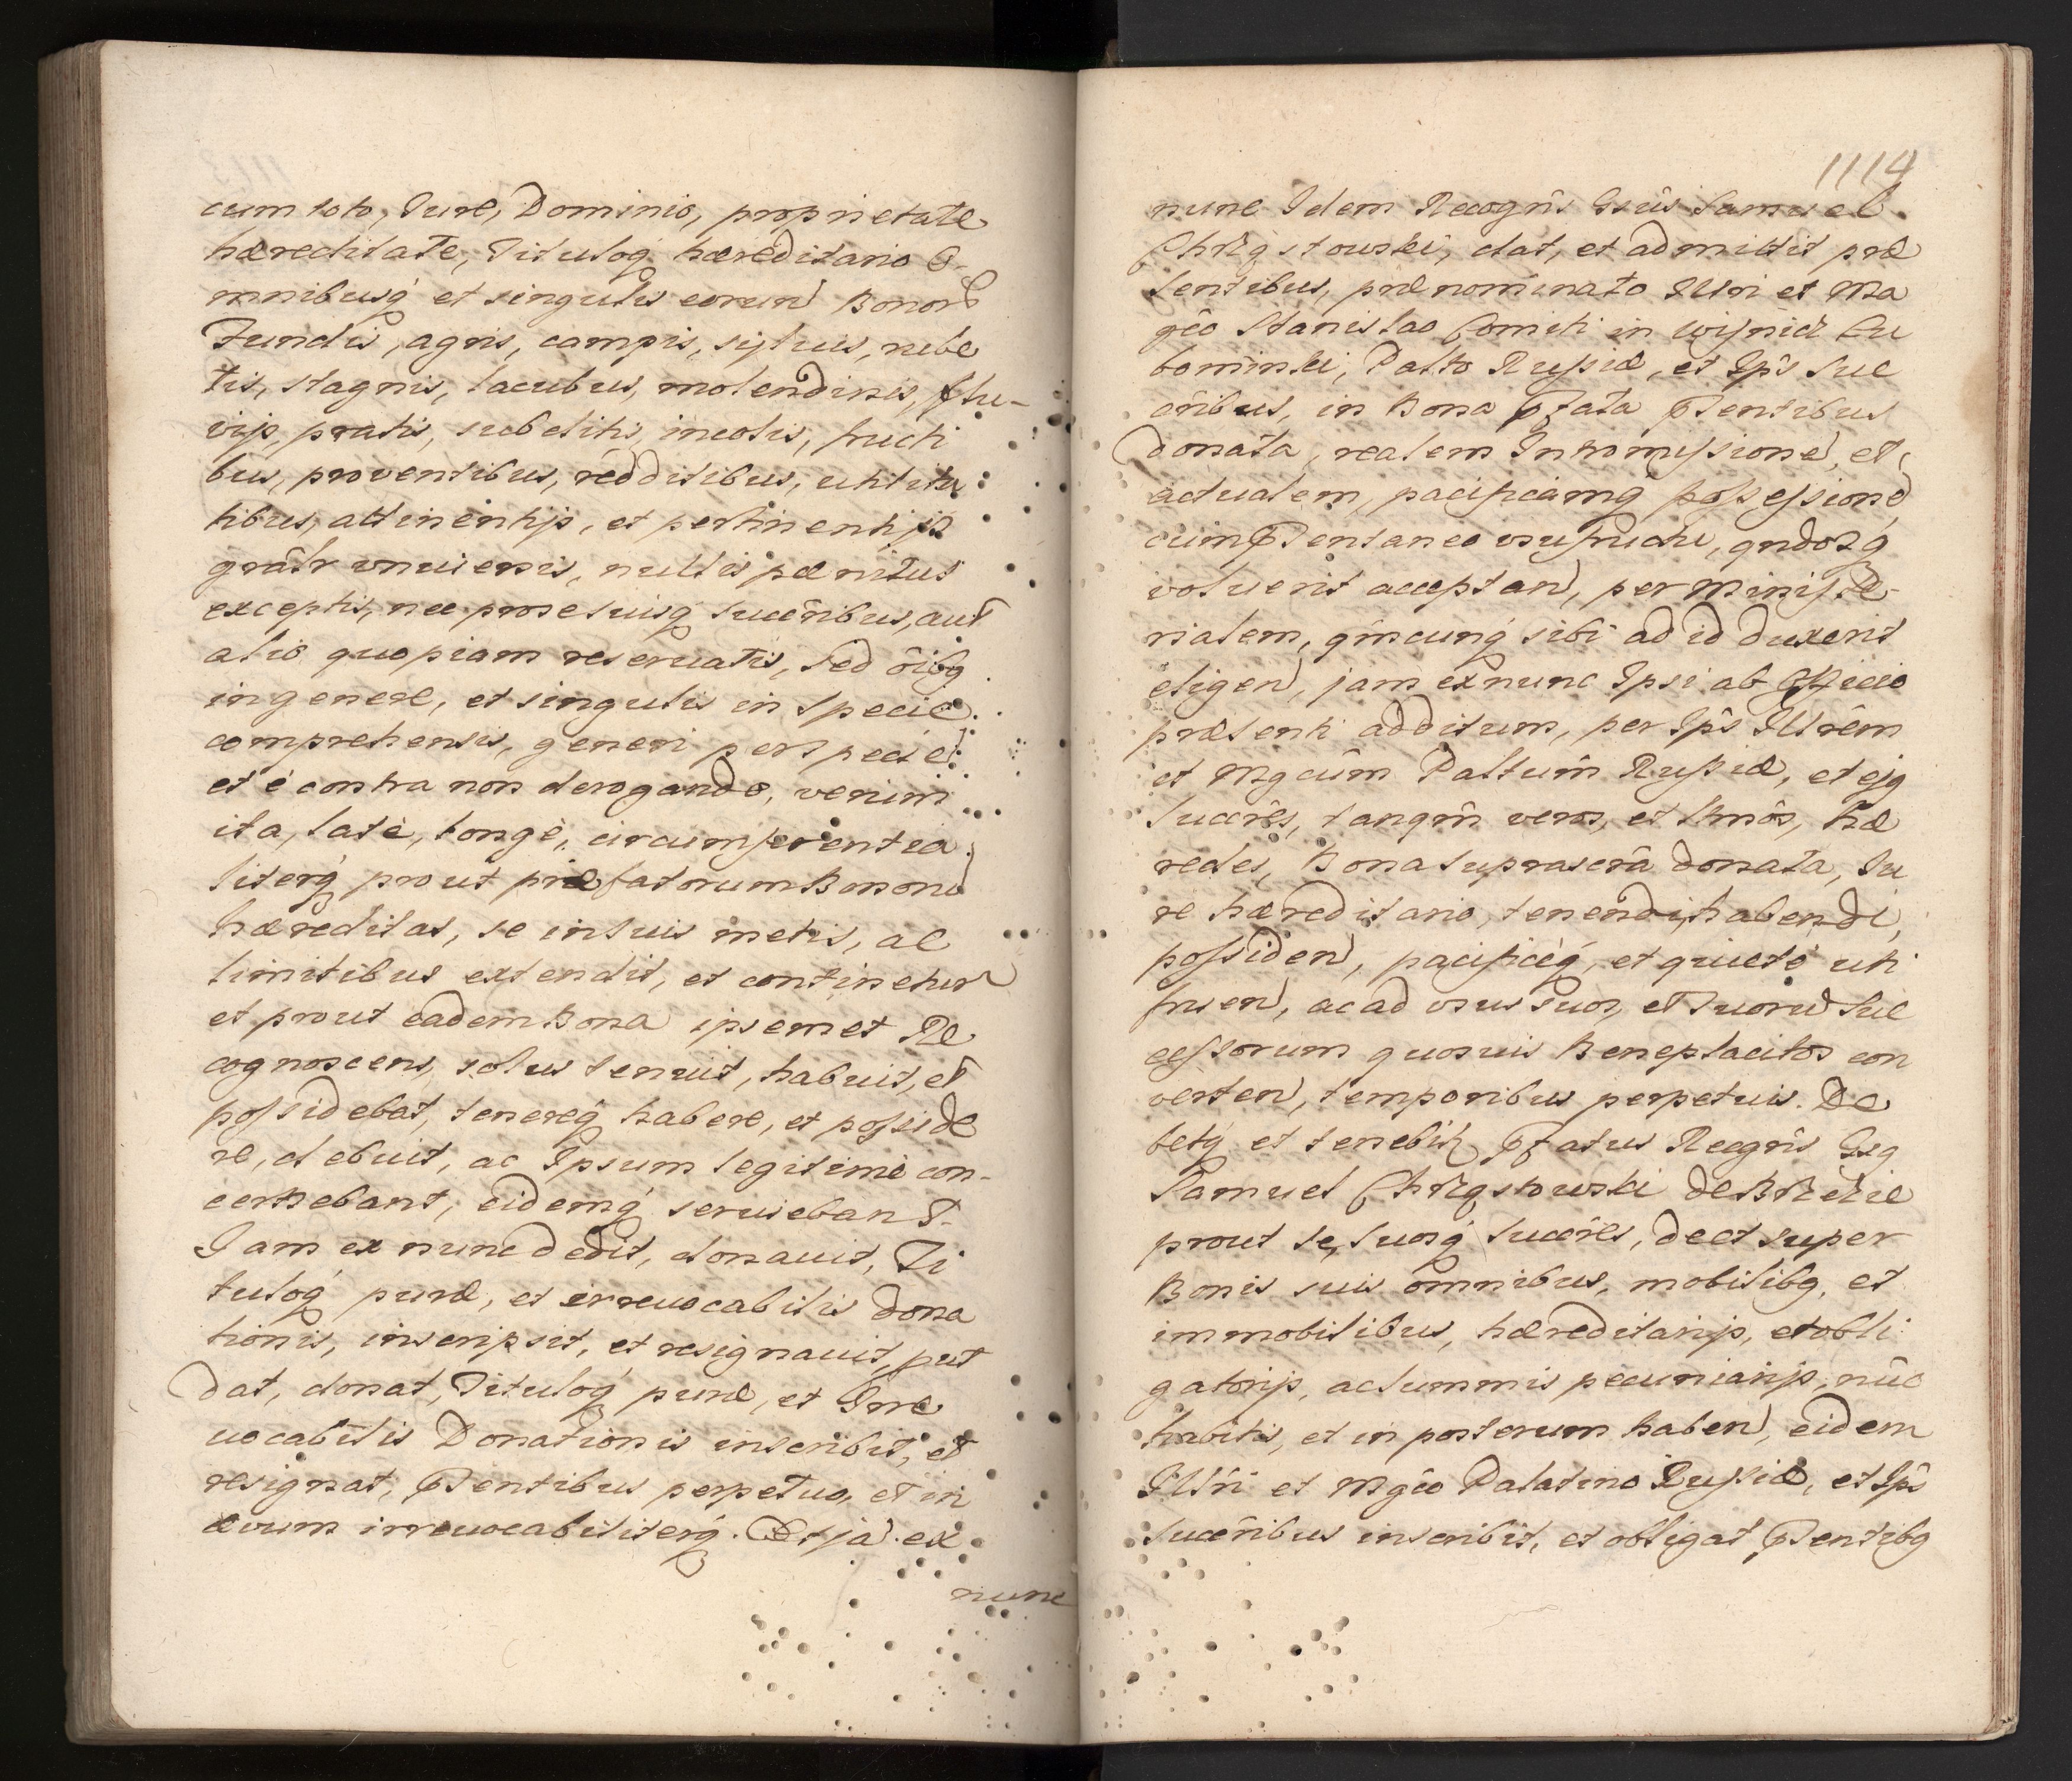 cum toto, Jure, Dominio, proprietate
hæreditate, Tituloq́ hæreditario O-
mnibusq́ et singulis eorum Bonorũ
Fundis, agris, campis, sylvis, rube
tis, stagnis, lacubus, molendinis, flu-
vijs, pratis, subditis, incolis, fructi
bus, proventibus, redditibus, utilita
tibus, attinentijs, et pertinentijs
gnâlr vniuersis, nullis pænitus
exceptis, nec pro se suisq́ succribus, aut
alio quopiam reseruatis, sed oibq
in genere, et singulis in specie
comprehensis, generi per speciẽ
et è contra non derogando, verum
ita, latè, longè, circumferentia
literq́ prout præfatorum Bonorũ
hæreditas, se in suis metis, ac
limitibus extendit, et continetur
et prout eadem Bona ipsemet Re
cognoscens, solus tenuit, habuit, et
possidebat, tenereq́ habere, et posside
re, debuit, ac Ipsum legitimè con-
cernebant, eidemq́ seruiebant.
Jam ex nunc dedit, donauit, Ti
tuloq́ puræ, et irreuocabilis Dona
tionis, inscripsit, et resignauit, put
dat, donat, Tituloq́ puræ, et Irre
uocabilis Donationis inscribit, et
resignat, pntibus perpetuo, et in
ævum irreuocabiliterq́. Et jã ex
nunc
1114
nunc Idem Recogns Gsus Samuel
Chrząstowski, dat, et admittit præ
sentibus, prænominato Illri et Ma
gco Stanislao Comiti in Wiśnicz Lu
bomirski, Palto Russiæ, et Ips suc
cribus, in Bona pfata psentibus
donata, realem Intromissionẽ, et
actualem, pacificamq́ possessionẽ
cum psentaneo vsufructu, qndosq́
voluerit acceptan, per Ministe-
rialem, qmcunq́ sibi ad id duxerit
eligen, jam ex nunc Ipsi ab Officio
præsenti additum, per Ips Illrem
et Mgcum Paltum Russiæ, et ejq
succres, tanqm veros, et ltmos, hæ
redes, Bona suprascra donata, Ju
re hæreditario, tenendi, habendi,
possiden, pacificeq́, et quietè uti
fruen, ac ad vsus suos, et suorũ suc
cessorum quosuis Beneplacitos con
verten, temporibus perpetuis. De
betq́ et tenebit pfatus Recgns Gsq
Samuel Chrząstowski de Brzezie
prout se, suosq́ succres, de et super
Bonis suis omnibus, mobilibq, et
immobilibus, hæreditarijs, et obli
gatorijs, ac summis pecuniarijs, nũc
habitis, et in posterum haben, eidem
Illri et Mgco Palatino Russiæ, et Ips
succribus inscribit, et obligat psentibq